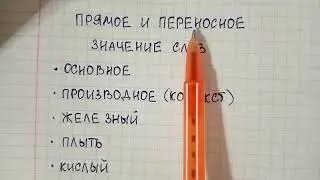 ПРЯМОЕ И ПЕРЕНОСНОЕ
ЗНАЧЕНИЕ
• ОСНОВНОЕ
• ПРОИЗВОДНОЕ
• ЖЕЛЕЗНЫЙ
• ПЛЫТЬ
• КИСЛЫЙ